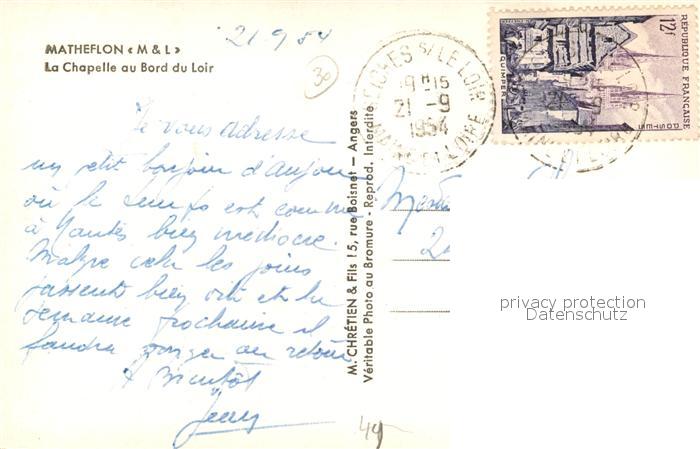 MATHEFLON « M & L »
La Chapelle au Bord du Loir
21 9 54
30
Je vous adresse
un petit bonjour d'Anjou
où le temps est comme
à Nantes bien médiocre.
Malgré cela les jours
passent bien vite et la
semaine prochaine il
faudra songer au retour
A bientôt
M. CHRÉTIEN & Fils 15, rue Boisnet - Angers
Véritable Photo au Bromure - Reprod. Interdite
SEICHES S/ LE LOIR
9H15
21 -9
1954
MAINE ET LOIRE
12F
RÉPUBLIQUE FRANÇAISE
QUIMPER
POSTES
privacy protection
Datenschutz